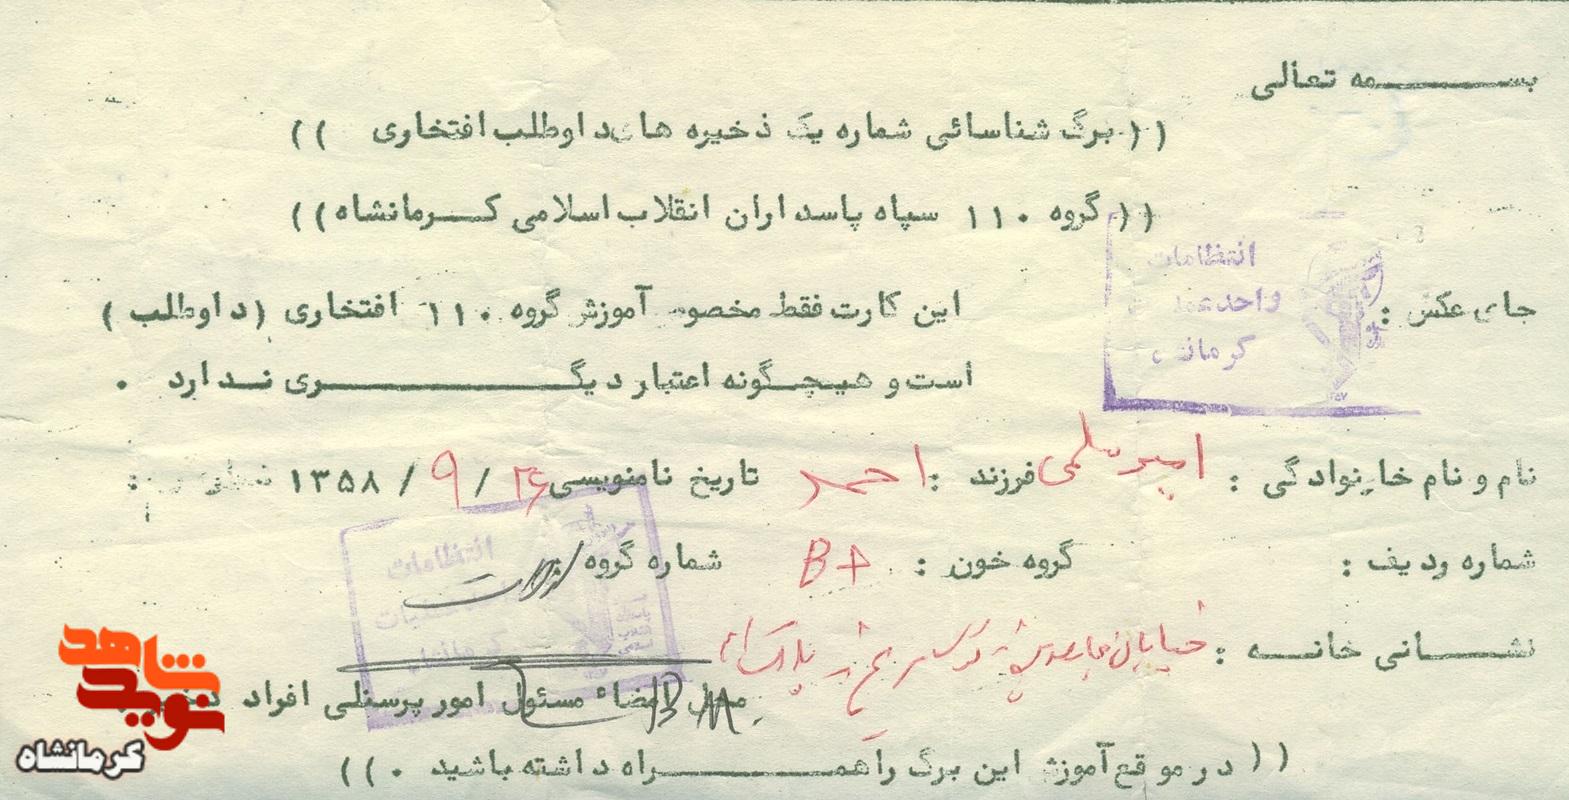 بسمه تعالی
((برگ شناسائی شماره یک ذخیره های داوطلب افتخاری))
((گروه ۱۱۰ سپاه پاسداران انقلاب اسلامی کرمانشاه))
جای عکس :
این کارت فقط مخصوص آموزش گروه ۱۱۰ افتخاری (داوطلب)
است و هیچگونه اعتبار دیگری ندارد .
انتظامات
واحد
کرمانشاه
نام و نام خانوادگی : امیر سلمی فرزند : احمد تاریخ نامنویسی ۲۶ / ۹ / ۱۳۵۸
شماره ردیف : گروه خون : B+ شماره گروه
انتظامات
کرمانشاه
نشانی خانه : خیابان پلاک
محل امضاء مسئول امور پرسنلی افراد
((در موقع آموزش این برگ را همراه داشته باشید .))
نوید شاهد
کرمانشاه